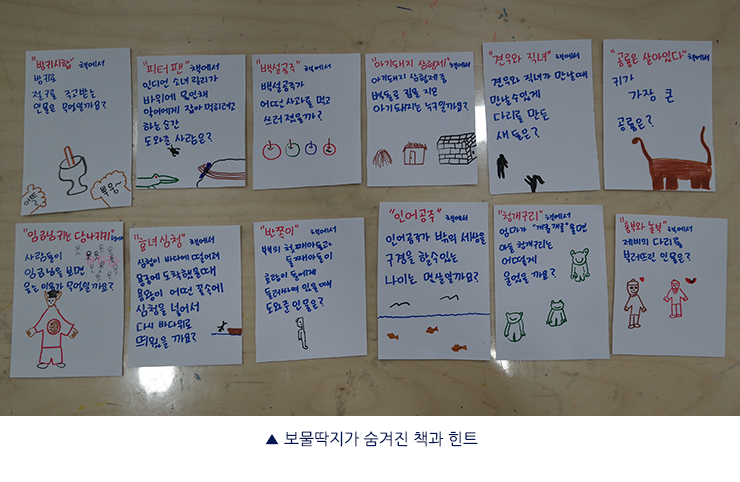 "방귀시합" 책에서
방귀로
절구를 주고받는
인물은 무엇일까요?
"피터 팬" 책에서
인디언 소녀 릴리가
바위에 묶인채
악어에게 잡아 먹히려고
하는 순간
도와준 사람은?
"백설공주" 책에서
백설공주가
어떤 사과를 먹고
쓰러졌을까?
"아기돼지 삼형제" 책에서
아기돼지 삼형제 중
벽돌로 집을 지은
아기돼지는 누구일까요?
"견우와 직녀" 책에서
견우와 직녀가 만날때
만날수있게
다리를 만든
새들은?
"공룡은 살아있다" 책에서
귀가
가장 큰
공룡은?
"임금님귀는 당나귀귀"
사람들이
임금님을 보면
웃는 이유가 무엇일까요?
"효녀 심청" 책에서
심청이 바다에 떨어져
용궁에 도착했을때
용왕이 어떤 꽃속에
심청을 넣어서
다시 바다위로
띄웠을 까요?
"반쪽이" 책에서
첫째아들과
둘째아들이
호랑이 들에게
둘러싸여 있을때
도와준 인물은?
"인어공주" 책에서
인어공주가 밖의 세상을
구경을 할수있는
나이는 몇살일까요?
"청개구리" 책에서
엄마가 "개굴개굴" 울면
아들 청개구리는
어떻게
울었을 까요?
"흥부와 놀부" 책에서
제비의 다리를
부러뜨린 인물은?
▲ 보물딱지가 숨겨진 책과 힌트